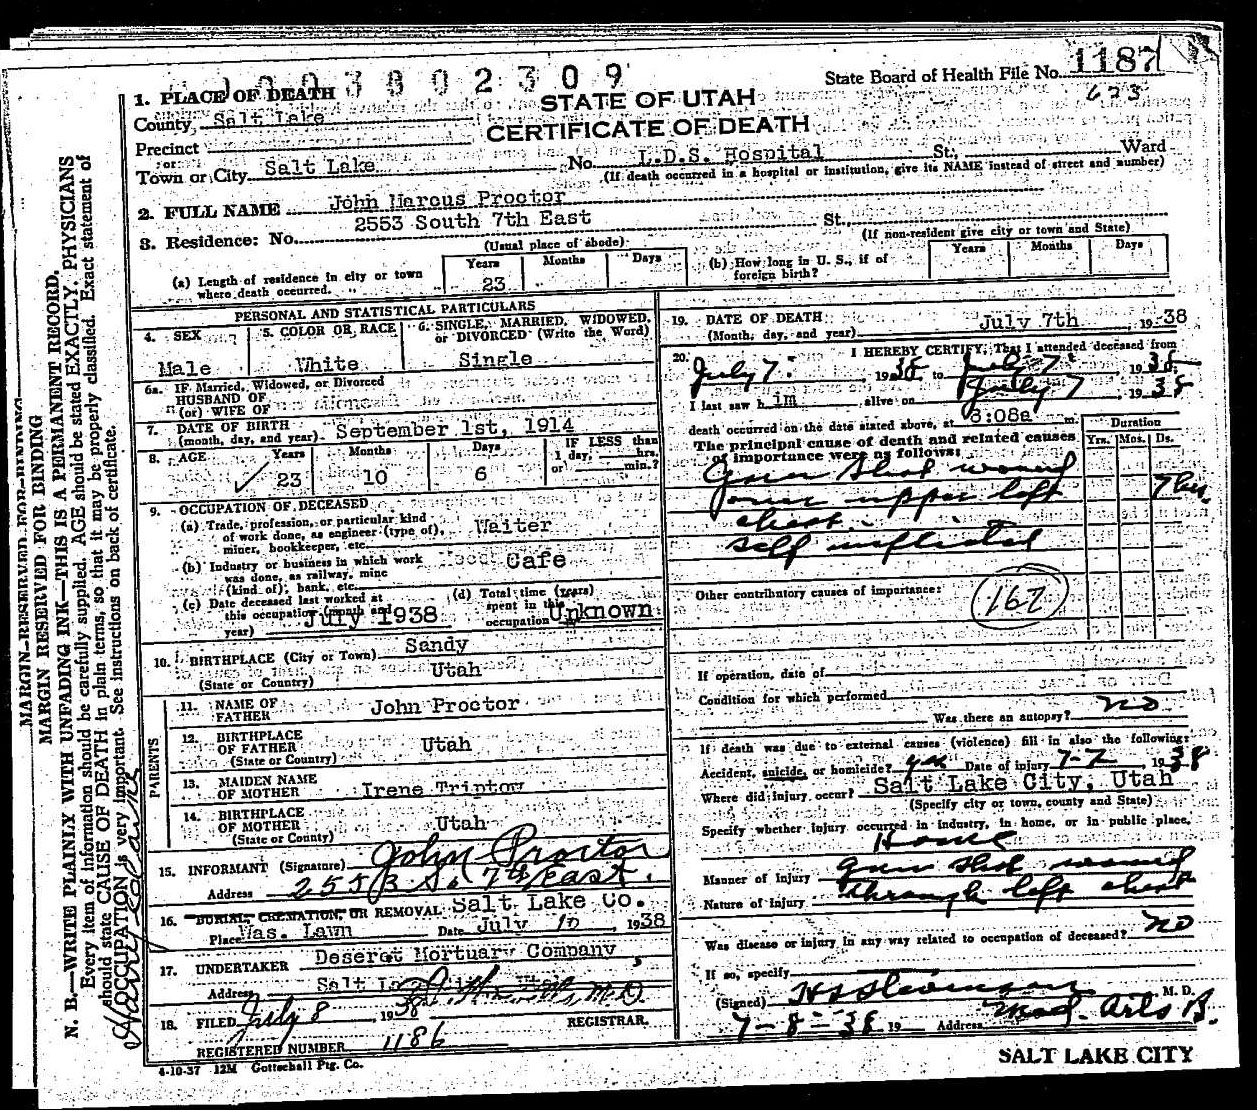 1003802309
State Board of Health File No. 1187
623
1. PLACE OF DEATH
STATE OF UTAH
County Salt Lake
CERTIFICATE OF DEATH
Precinct
or
Town or City Salt Lake No. L.D.S. Hospital St., Ward
(If death occurred in a hospital or institution, give its NAME instead of street and number)
2. FULL NAME John Marcus Proctor
2553 South 7th East
3. Residence: No. St.
(Usual place of abode) (If non-resident give city or town and State)
(a) Length of residence in city or town where death occurred. Years 23 Months Days
(b) How long in U. S., if of foreign birth? Years Months Days
PERSONAL AND STATISTICAL PARTICULARS
4. SEX 5. COLOR OR RACE 6. SINGLE, MARRIED, WIDOWED, or DIVORCED (Write the Word)
Male White Single
6a. IF Married, Widowed, or Divorced
HUSBAND OF
(or) WIFE OF
7. DATE OF BIRTH
(month, day, and year) September 1st, 1914
8. AGE Years Months Days IF LESS than
1 day, hrs.
or min.?
23 10 6
9. OCCUPATION OF DECEASED
(a) Trade, profession, or particular kind
of work done, as engineer (type of),
miner, bookkeeper, etc. Waiter
(b) Industry or business in which work
was done, as railway, mine
(kind of), bank, etc. Cafe
(c) Date deceased last worked at
this occupation (month and
year) July 1938
(d) Total time (years)
spent in this
occupation Unknown
10. BIRTHPLACE (City or Town) Sandy
(State or Country) Utah
PARENTS
11. NAME OF
FATHER John Proctor
12. BIRTHPLACE
OF FATHER Utah
(State or Country)
13. MAIDEN NAME
OF MOTHER Irene Tripton
14. BIRTHPLACE
OF MOTHER Utah
(State or County)
15. INFORMANT (Signature) John Proctor
Address 2553 So. 7th East.
16. BURIAL, CREMATION, OR REMOVAL Salt Lake Co.
Place Was. Lawn Date July 10 1938
17. UNDERTAKER Deseret Mortuary Company,
Address Salt Lake City, Utah
M.D.
18. FILED July 8, 1938
REGISTRAR.
REGISTERED NUMBER 1186
4-10-37 12M Gottschall Ptg. Co.
19. DATE OF DEATH
(Month, day, and year) July 7th, 1938
20. I HEREBY CERTIFY, That I attended deceased from
July 7, 1938 to July 7 1938
I last saw him alive on July 7, 1938
death occurred on the date stated above, at 8:08a m.
The principal cause of death and related causes
of importance were as follows:
Duration
Yrs. Mos. Ds.
Gun Shot wound
over upper left 7 hrs.
chest
self inflicted
Other contributory causes of importance:
167
If operation, date of
Condition for which performed
Was there an autopsy? no
If death was due to external causes (violence) fill in also the following:
Accident, suicide, or homicide? yes Date of injury 7-7, 1938
Where did injury occur? Salt Lake City, Utah
(Specify city or town, county and State)
Specify whether injury occurred in industry, in home, or in public place.
Home
Manner of injury Gun Shot wound
Nature of Injury through left chest
Was disease or injury in any way related to occupation of deceased? no
If so, specify
(Signed) H S Stevenson M. D.
7-8-38 19 Address Med. Arts B.
SALT LAKE CITY
MARGIN RESERVED FOR BINDING
MARGIN RESERVED FOR BINDING
N. B.—WRITE PLAINLY WITH UNFADING INK—THIS IS A PERMANENT RECORD.
Every item of information should be carefully supplied. AGE should be stated EXACTLY. PHYSICIANS
should state CAUSE OF DEATH in plain terms, so that it may be properly classified. Exact statement of
OCCUPATION is very important. See instructions on back of certificate.